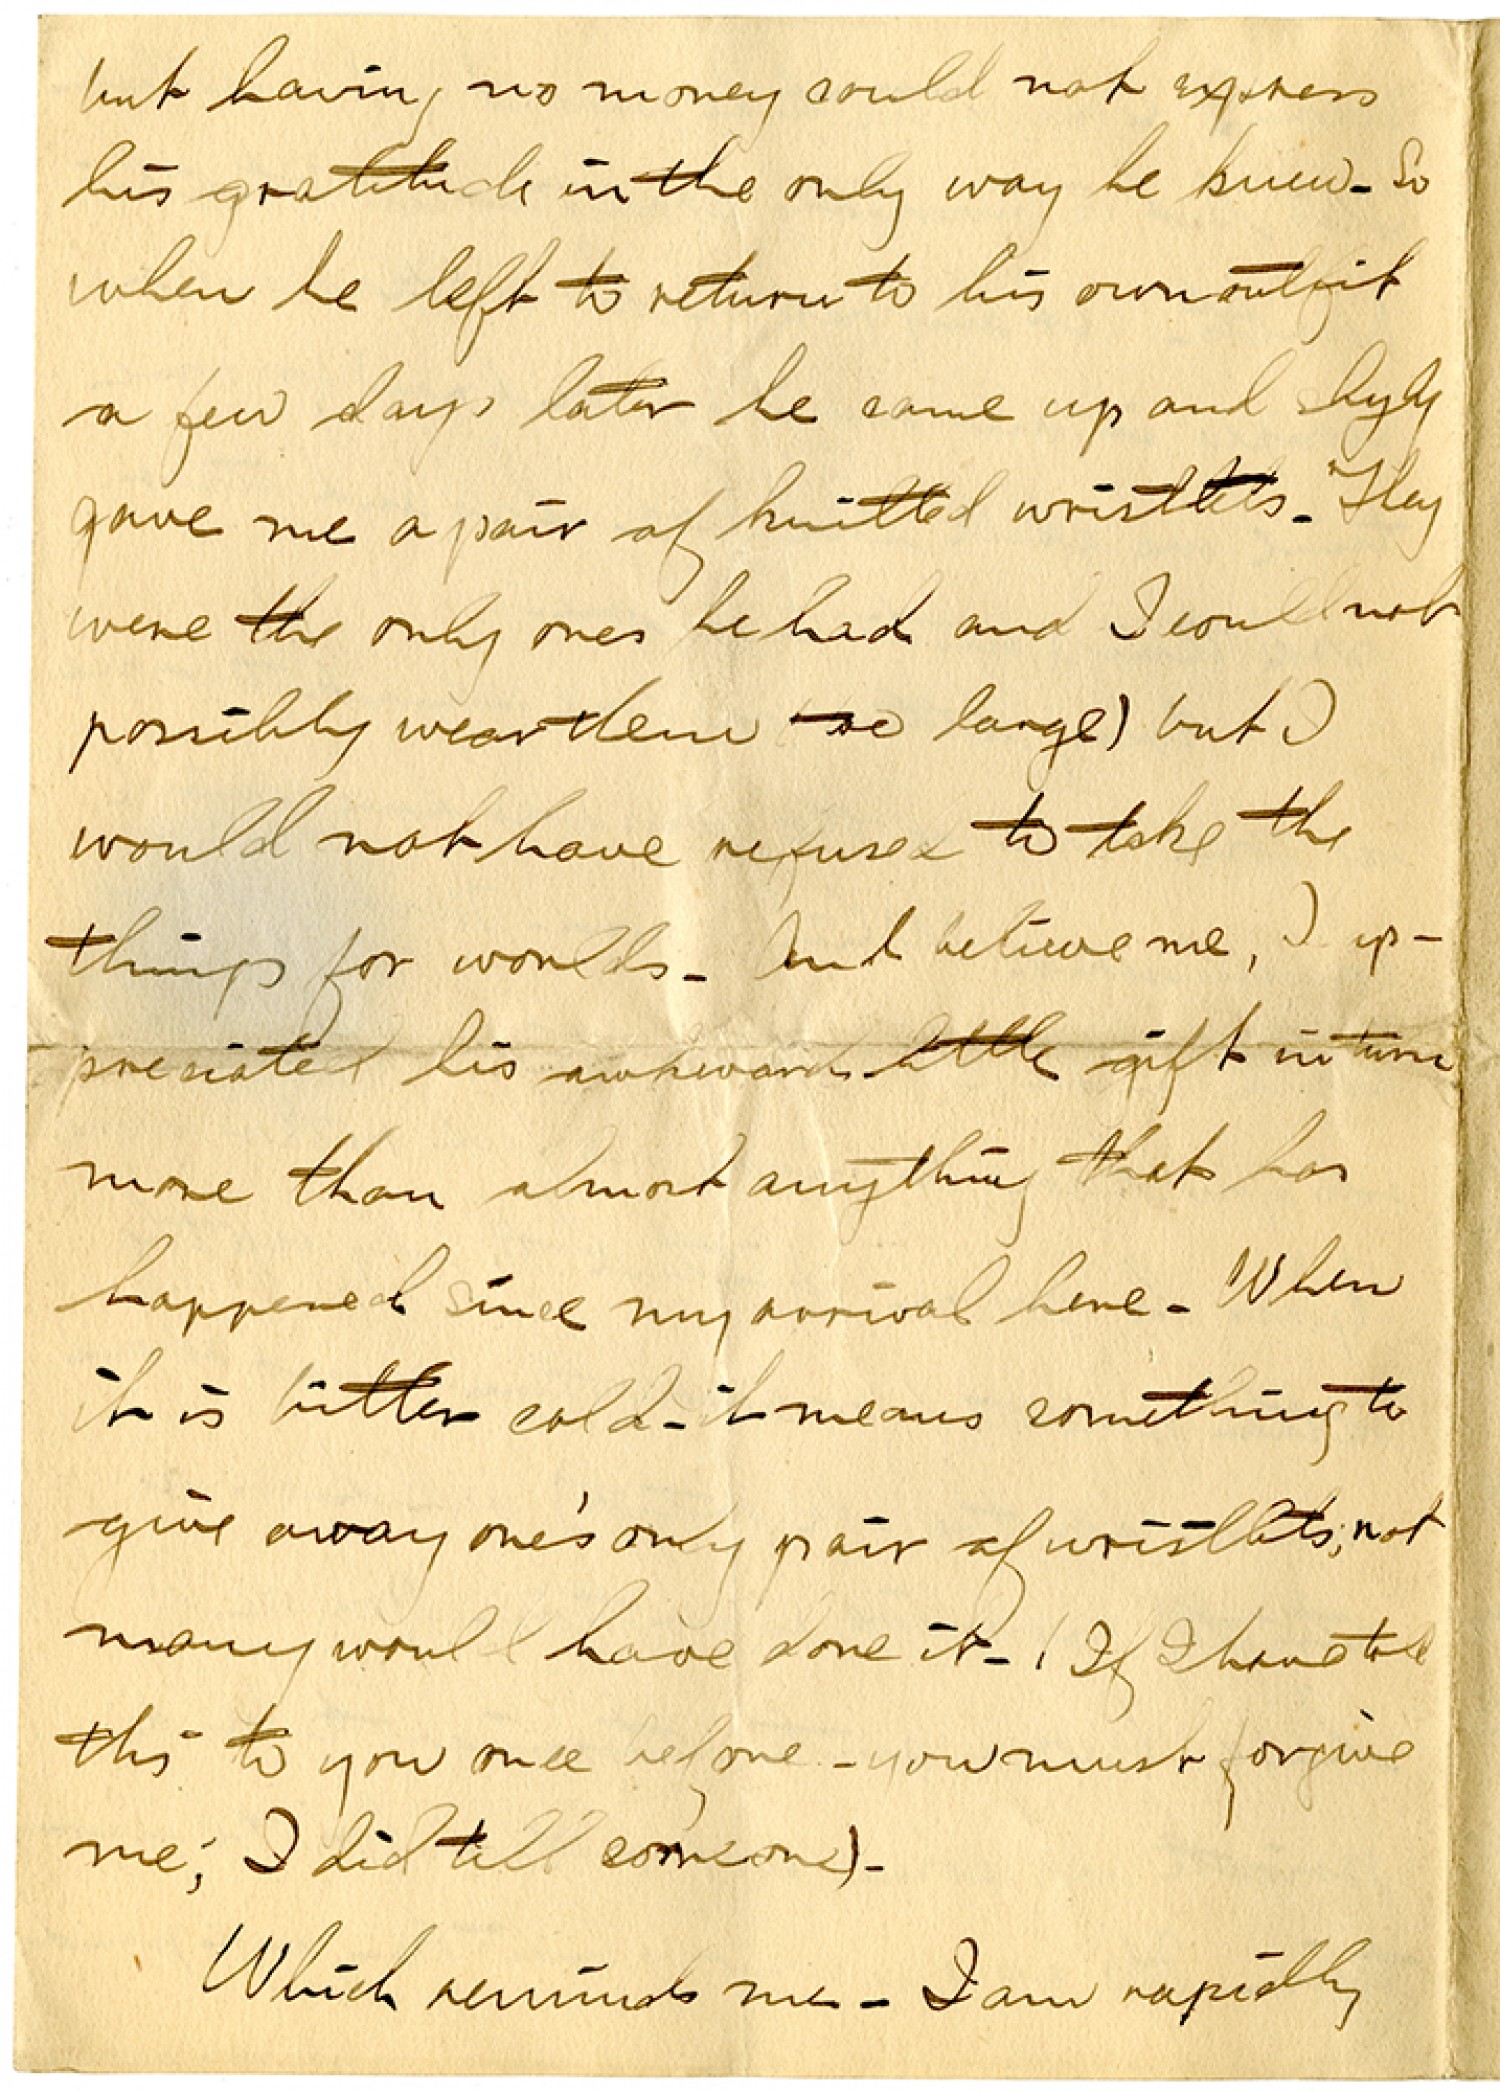 but having no money could not express
his gratitude in the only way he knew - So
when he left to return to his own outfit
a few days later he came up and shyly
gave me a pair of knitted wristlets - They
were the only ones he had and I could not
possibly wear them (too large) but I
would not have refused to take the
things for worlds - And believe me, I ap-
preciated his awkward little gift in turn
more than almost anything that has
happened since my arrival here - When
it is bitter cold - it means something to
give away one's only pair of wristlets; not
many would have done it - (If I have told
this to you once before - you must forgive
me; I did tell someone) -
Which reminds me - I am rapidly